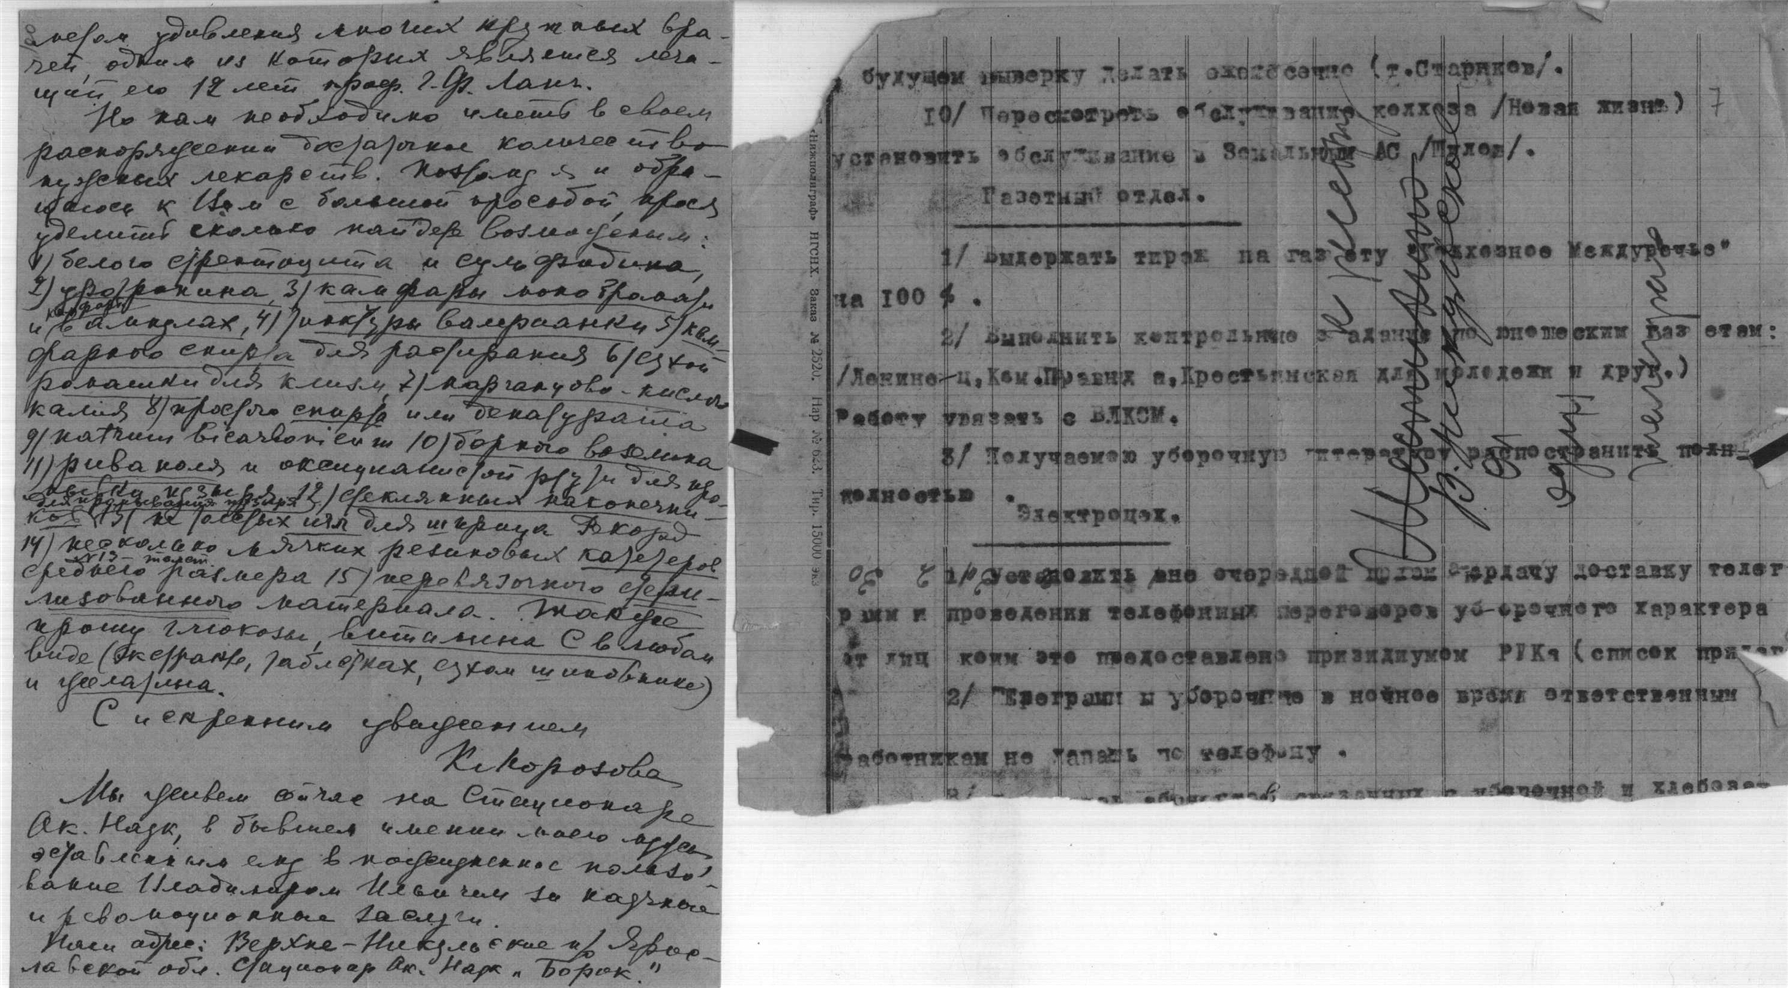 мером удивления многих крупных вра-
чей, одним из которых является леча-
щий его 12 лет проф. Г.Ф. Ланг.
Но нам необходимо иметь в своем
распоряжении достаточное количество
нужных лекарств. Поэтому я и обра-
щаюсь к Вам с большой просьбой, прося
уделить сколько найдете возможным:
1) белого стрептоцита и сульфидина,
2) уротропина, 3) камфары монобромати
и в ампулах, 4) тинктуры валерианки 5) кам
фарного спирта для растирания 6) сухой
ромашки для клизм, 7) марганцово-кислого
калия 8) простого спирта или денатурата
9) natrum bicarbonicum 10) борного вазелина
11) риваноля и оксицианистой ртути для про-
мывки пузыря 12) стеклянных наконечни-
для промывания пузыря
ков 13) игл для шприца Рекорд
14) несколько мягких резиновых катетеров
среднего размера 15) перевязочного стери-
лизованного материала. Также
прошу глюкозы, витамина С в любом
виде (экстракте, таблетках, сухом шиповнике)
и желатина.
С искренним уважением
К. Морозова
Мы живем сейчас на Стационаре
Ак. Наук, в бывшем имении моего мужа,
оставленным ему в пожизненное пользо-
вание Владимиром Ильичем за научные
и революционные заслуги.
Наш адрес: Верхне-Никульское п/о Яро-
славской обл. Стационар Ак. Наук "Борок."
будущем выверку делать ежемесячно (т.Стариков/.
10/ Пересмотреть обслуживание колхоза /Новая жизнь) 7
установить обслуживание в Земельный АС /Шилов/.
Газетный отдел.
1/ Выдержать тираж на газету "Колхозное Междуречье"
на 100 % .
2/ Выполнить контрольные задание по юношеским газ етам:
/Ленине-ц, Ком.Правид а, Крестьянская для молодежи и друг.)
Работу увязать с ВЛКСМ.
3/ Получаемою уборочную литературу распостранить полн-
ностью .
Электроцех.
1/ Установить вне очередной прием передачу доставку телег
рамм и проведения телефонных переговоров уб-орочного характера
от лиц коим это предоставлено призидиумом РИКа (список прилаг
2/ Телеграмм ы уборочные в ночное время ответственным
работникам не давать по телефону .
уборочной и хлебозаг